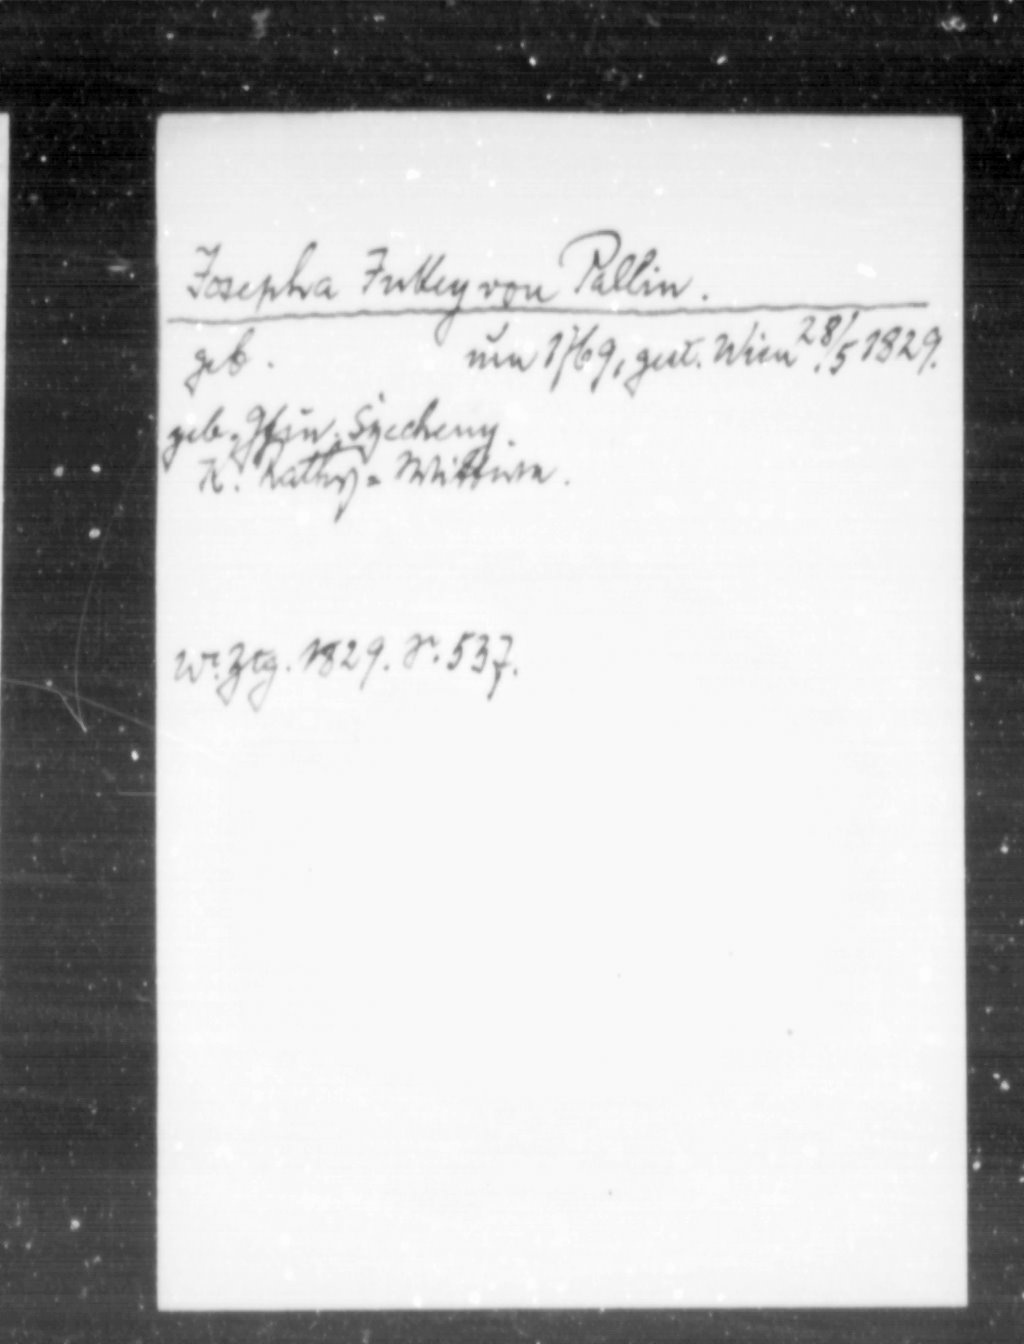 Josepha Inkey von Pallin.
geb. um 1769, gest. Wien 28./5 1829.
geb. Gfin. Szecheny.
K. Raths-Wittwe.
Wr. Ztg. 1829. S. 537.